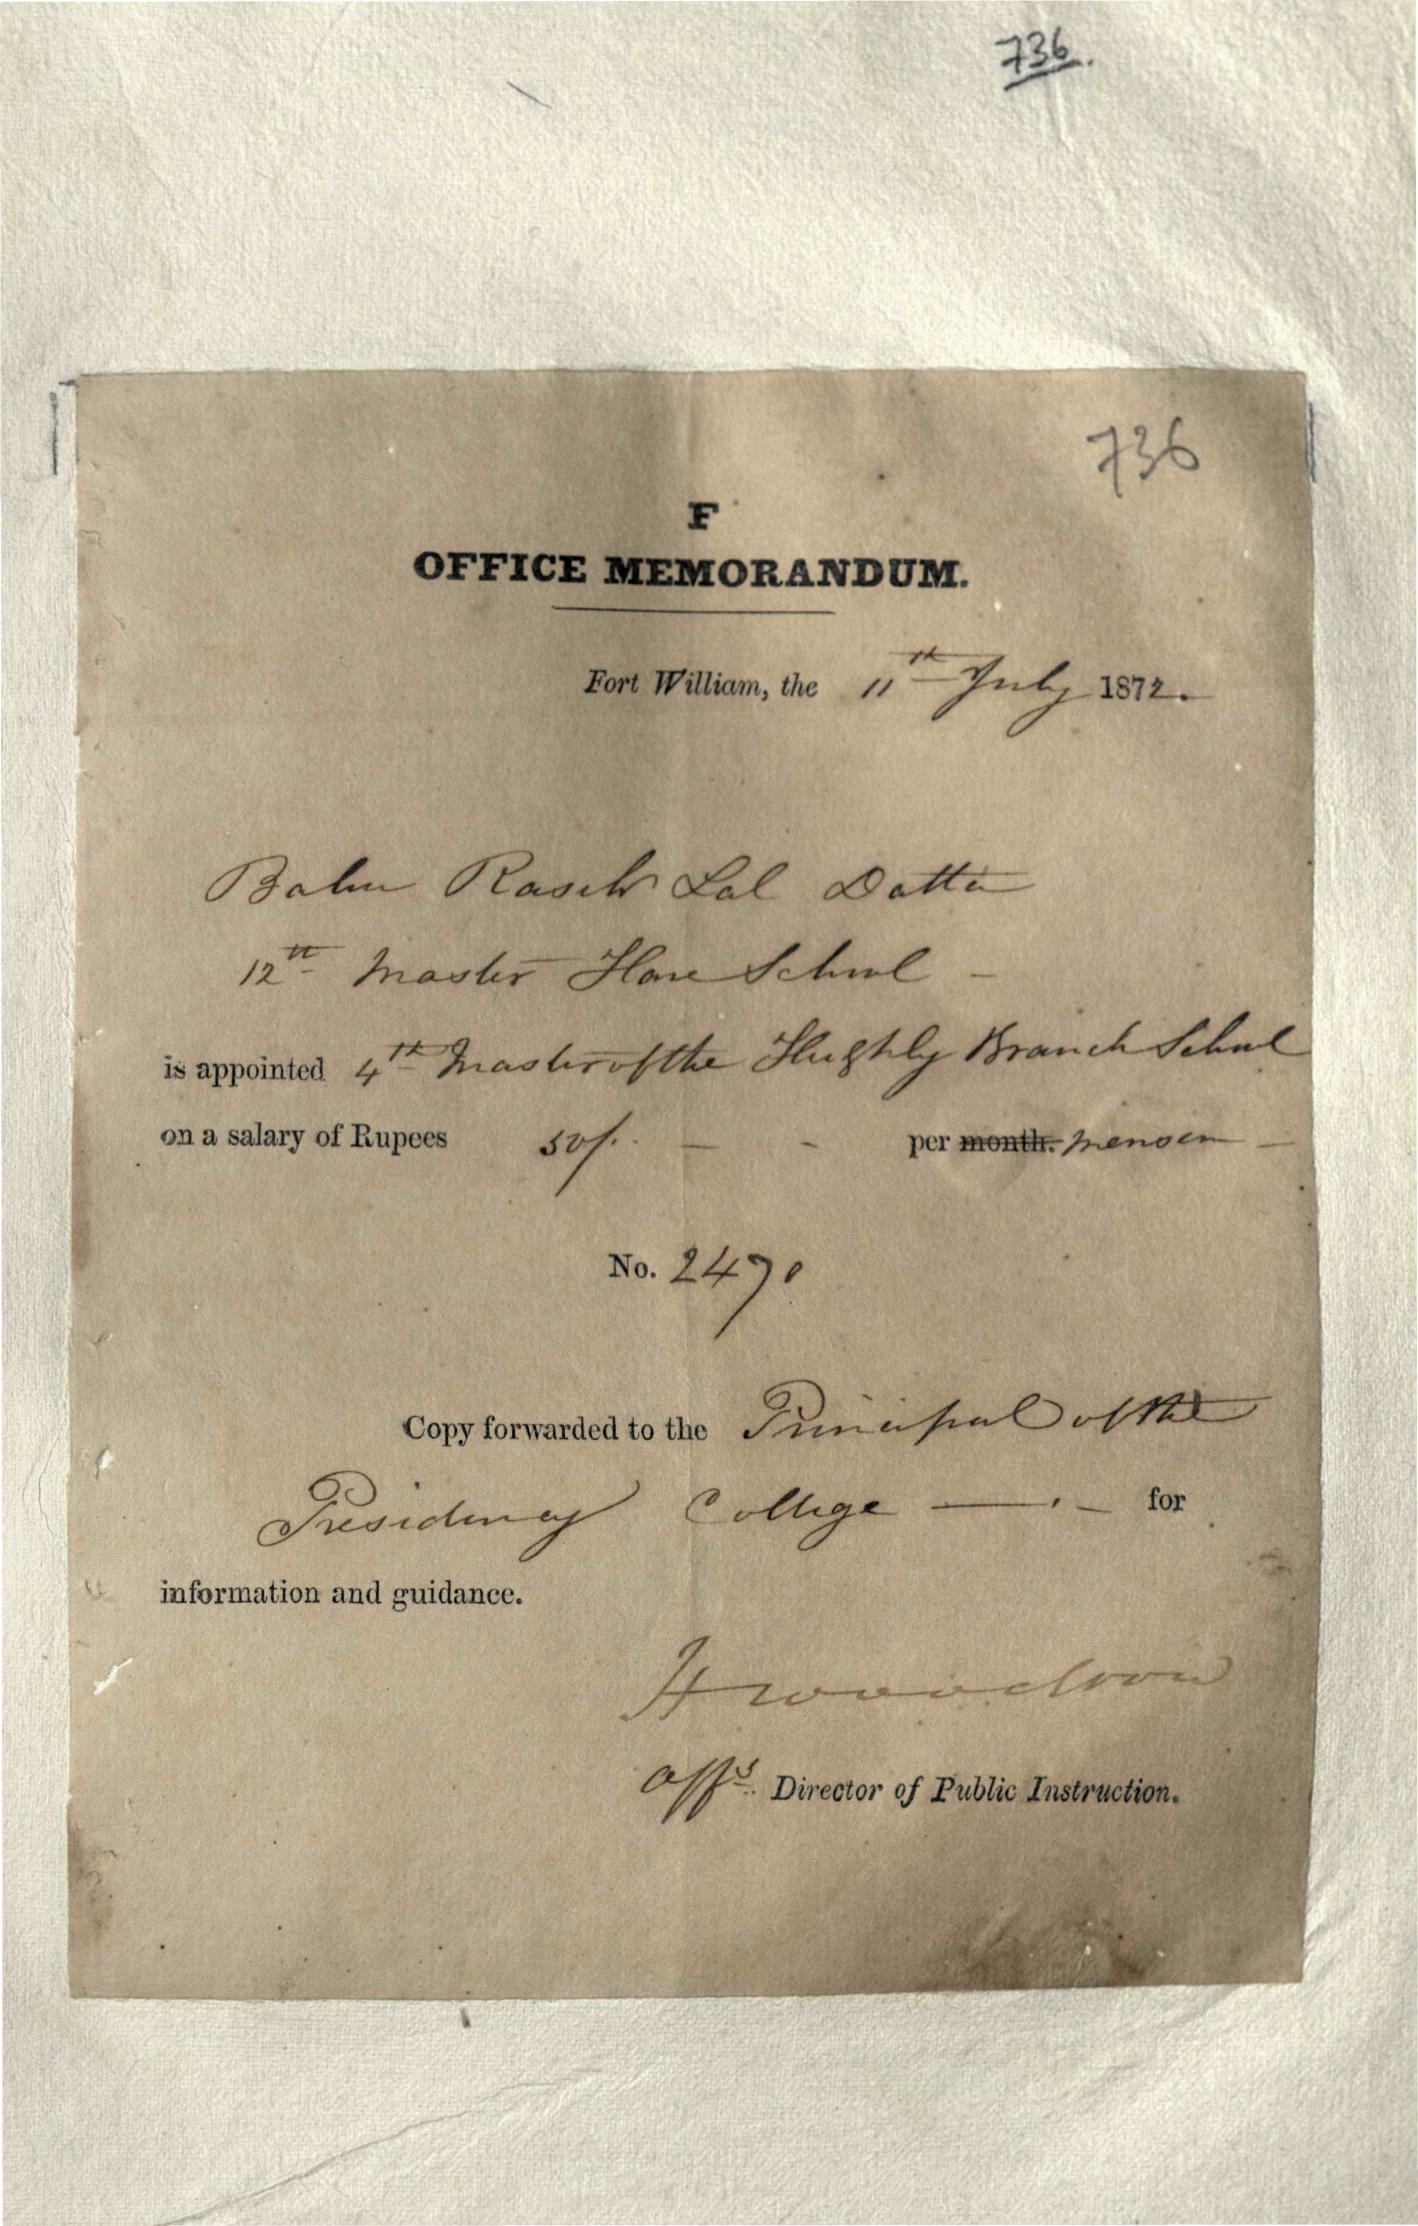 736.
736
F
OFFICE MEMORANDUM.
Fort William, the 11th July 1872.
Babu Rasik Lal Datta
12th Master Hare School -
is appointed 4th Master of the Hughly Branch School
on a salary of Rupees 50/. - - per month. mensem -
No. 2470
Copy forwarded to the Principal of the
Presidency College - . - for
information and guidance.
H Woodrow
Offg. Director of Public Instruction.